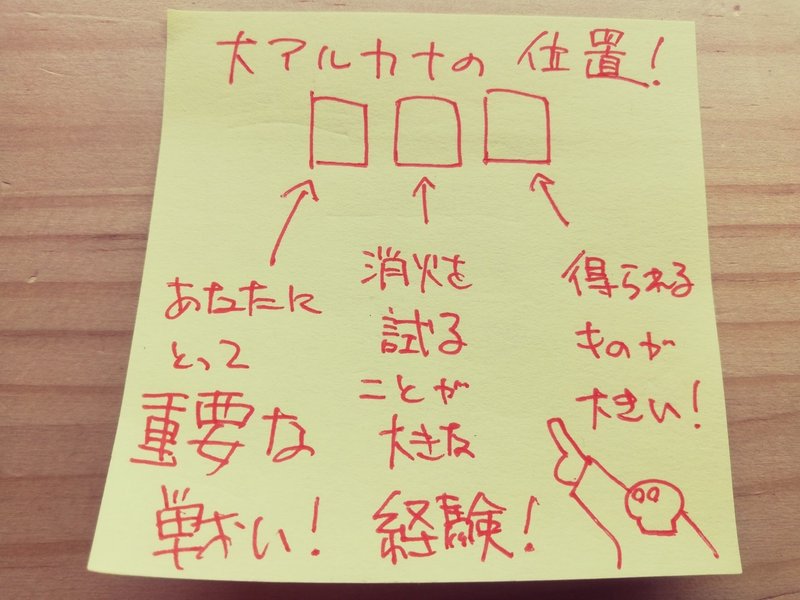 大アルカナの位置!
あなたに
とって
重要な
戦い!
消火を
試る
ことが
大きな
経験!
得られる
ものが
大きい!